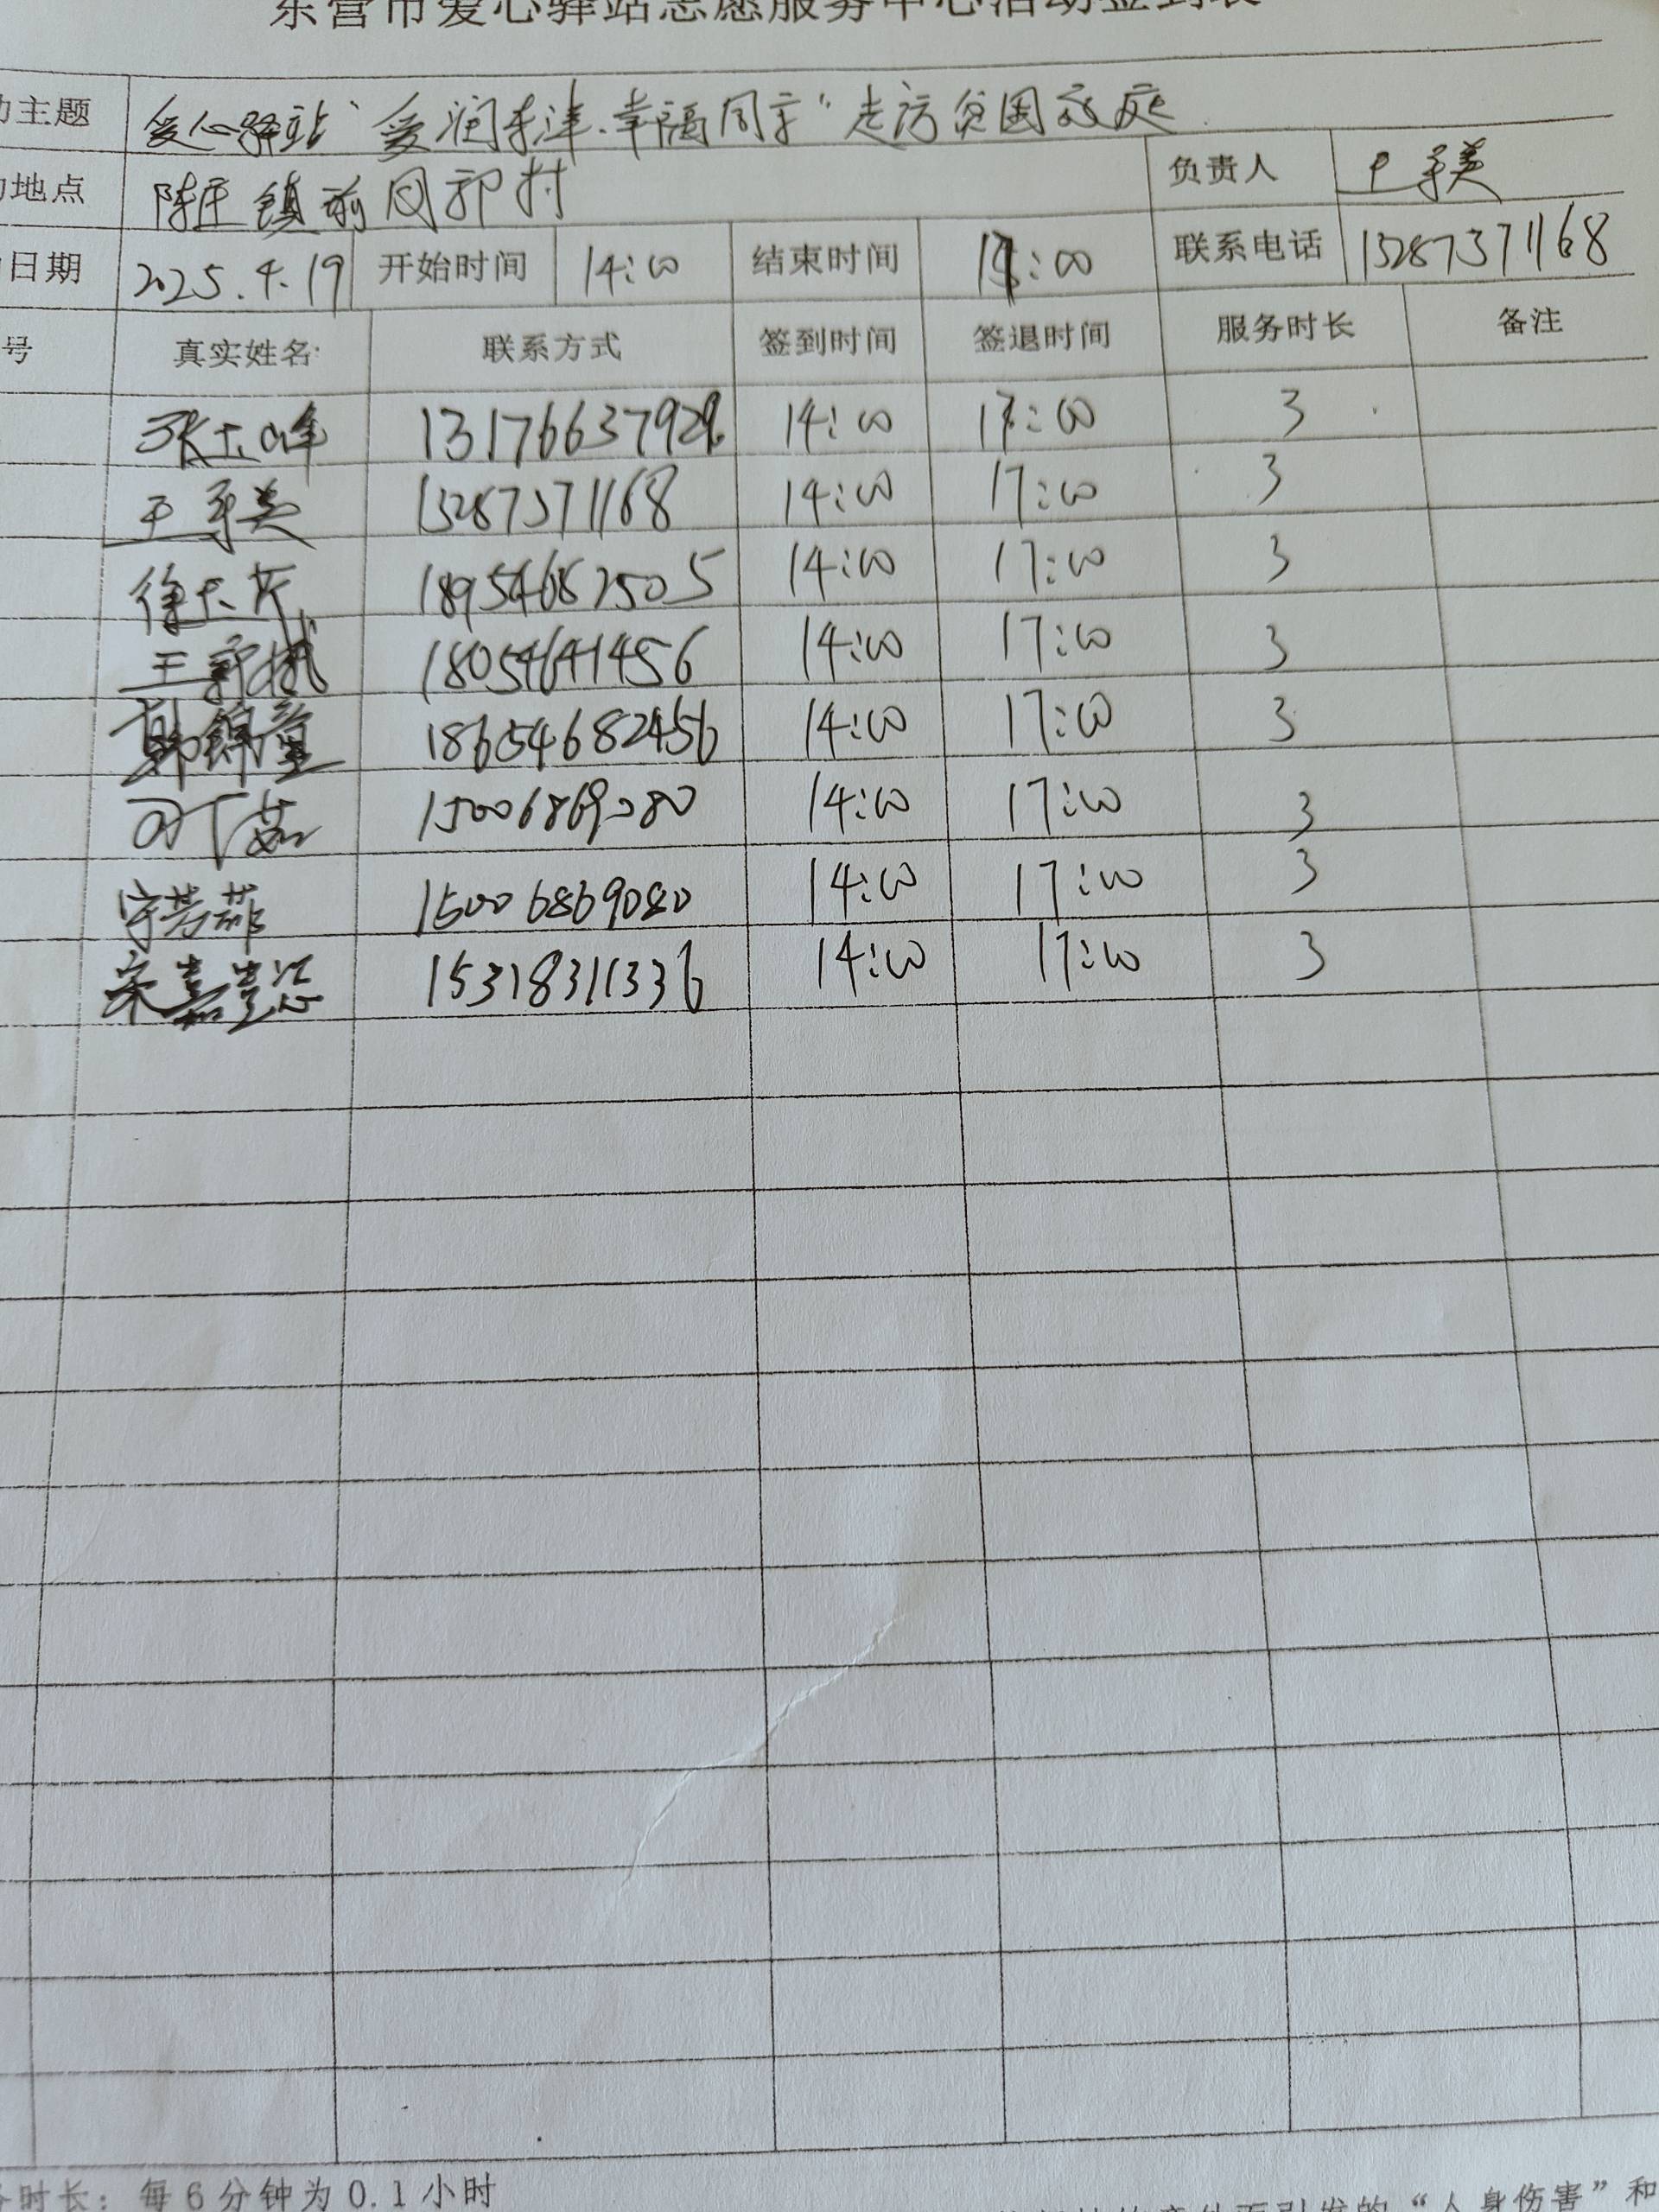 东营市爱心驿站志愿服务中心活动签到表
动主题 爱心驿站"爱润东津·幸福同享"走访贫困家庭
动地点 陈庄镇前闫郭村 负责人
日期 2025.4.19 开始时间 14:00 结束时间 17:00 联系电话 15287371168
号 真实姓名 联系方式 签到时间 签退时间 服务时长 备注
13176637929 14:00 17:00 3
15287371168 14:00 17:00 3
18954682505 14:00 17:00 3
18054641456 14:00 17:00 3
韩锦童 18654682456 14:00 17:00 3
15006869080 14:00 17:00 3
15006869080 14:00 17:00 3
宋嘉 15318311336 14:00 17:00 3
务时长：每6分钟为0.1小时
引发的“人身伤害”和